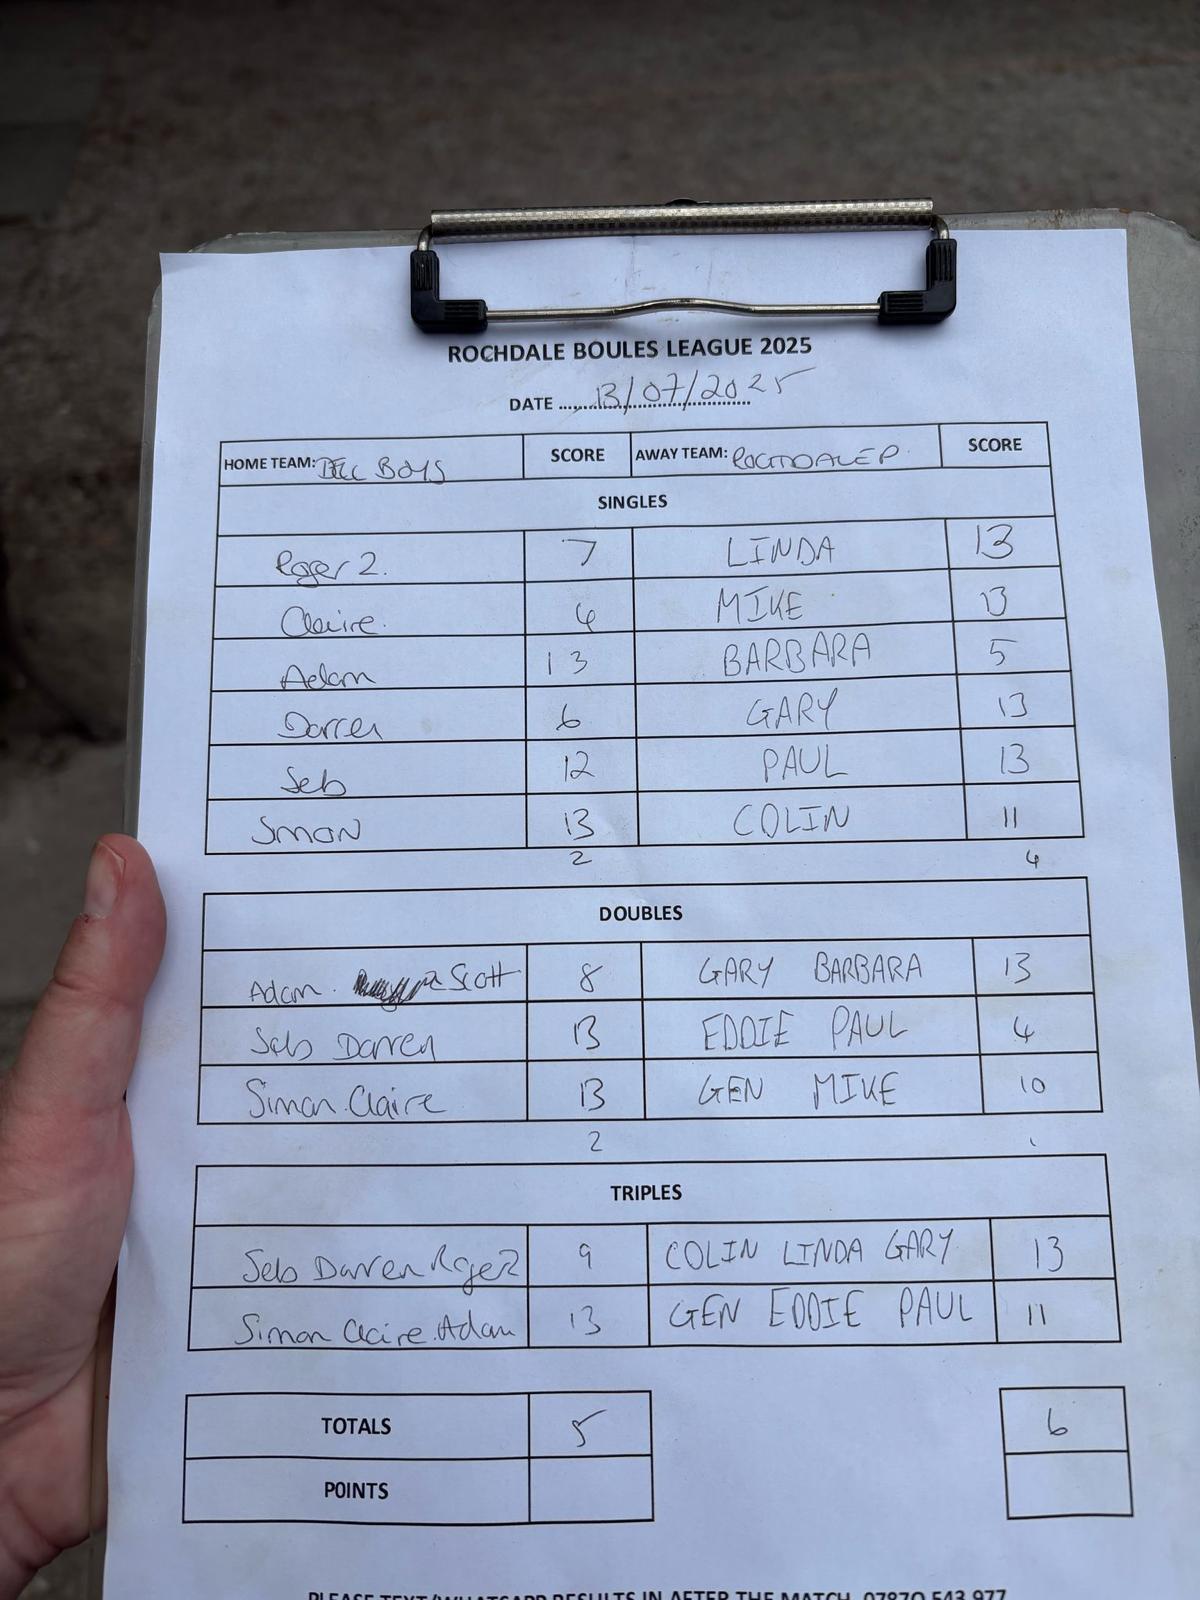 ROCHDALE BOULES LEAGUE 2025
DATE ...13/07/2025
HOME TEAM: DELL BOYS SCORE AWAY TEAM: ROCHDALE P. SCORE
SINGLES
Roger 2. 7 LINDA 13
Claire. 4 MIKE 13
Adam 13 BARBARA 5
Darren 6 GARY 13
Seb 12 PAUL 13
SIMON 13 COLIN 11
2 4
DOUBLES
Adam. Scott 8 GARY BARBARA 13
Seb Darren 13 EDDIE PAUL 4
Simon.Claire 13 GEN MIKE 10
2 1
TRIPLES
Seb Darren Roger2 9 COLIN LINDA GARY 13
Simon Claire.Adam 13 GEN EDDIE PAUL 11
TOTALS 5 6
POINTS
PLEASE TEXT/WHATSAPP RESULTS IN AFTER THE MATCH 07870 543 977